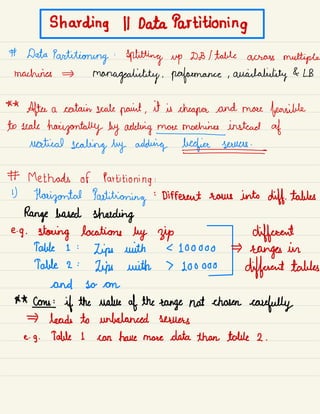 Sharding || Data Partitioning
# Data Partitioning : Splitting up DB / table across multiple
machines ⇒ manageability, performance, availability & LB
** After a certain scale point, it is cheaper and more feasible
to scale horizontally by adding more machines instead of
vertical scaling by adding beefier servers.
# Methods of Partitioning :
1) Horizontal Partitioning : Different rows into diff. tables
Range based sharding
e.g. storing locations by zip different
Table 1 : Zips with < 100000 ⇒ ranges in
Table 2 : Zips with > 100000 different tables
and so on
** Cons : if the value of the range not chosen carefully
⇒ leads to unbalanced servers
e.g. Table 1 can have more data than table 2.